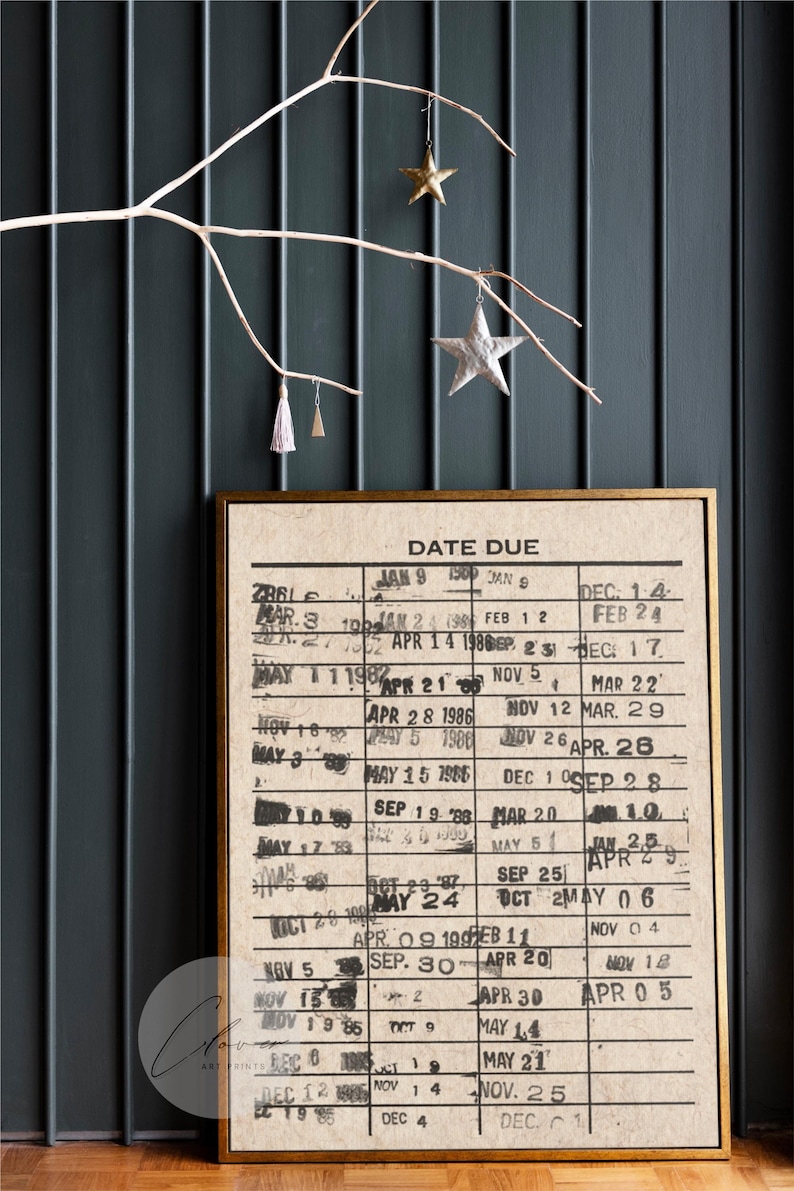 DATE DUE
JAN 9 1986 JAN 9 DEC. 14
MAR. 3 1982 JAN 24 1986 FEB 12 FEB 24
APR. 27 1982 APR 14 1986 SEP. 23 DEC. 17
MAY 11 1982 APR 21 '86 NOV 5 MAR 22
APR 28 1986 NOV 12 MAR. 29
NOV 16 '82 MAY 5 1986 NOV 26 APR. 26
MAY 3 '83 MAY 15 1986 DEC 10 SEP 28
MAY 10 '83 SEP 19 '86 MAR 20 JAN. 10
MAY 17 '83 MAY 5 JAN 25
SEP 25 APR 29
OCT 23 '87 OCT 2 MAY 06
MAY 24
OCT 28 FEB 11 NOV 04
APR. 09 1992
NOV 5 SEP. 30 APR 20 NOV 18
NOV 15 '85 2 APR 30 APR 05
NOV 19 '85 OCT 9 MAY 14
DEC 6 1985 OCT 19 MAY 21
DEC 12 1985 NOV 14 NOV. 25
DEC 19 '85 DEC 4 DEC. 01
Clover
ART PRINTS